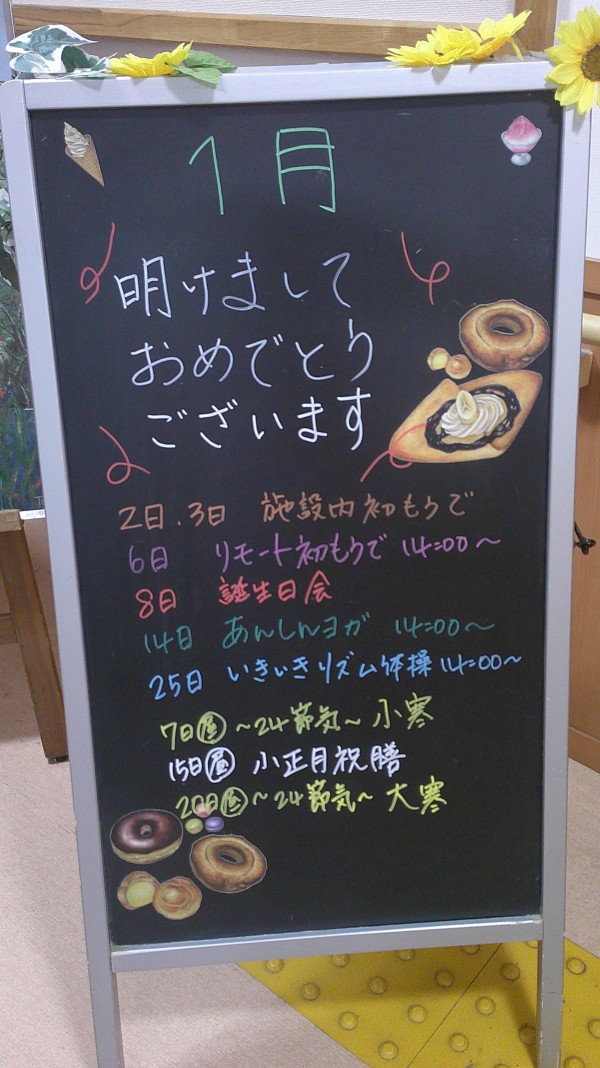 1月
明けまして
おめでとう
ございます
2日.3日 施設内初もうで
6日 リモート初もうで 14:00～
8日 誕生日会
14日 あんしんヨガ 14:00～
25日 いきいきリズム体操 14:00～
7日㊐～24節気～小寒
15日昼 小正月祝膳
20日昼～24節気～大寒